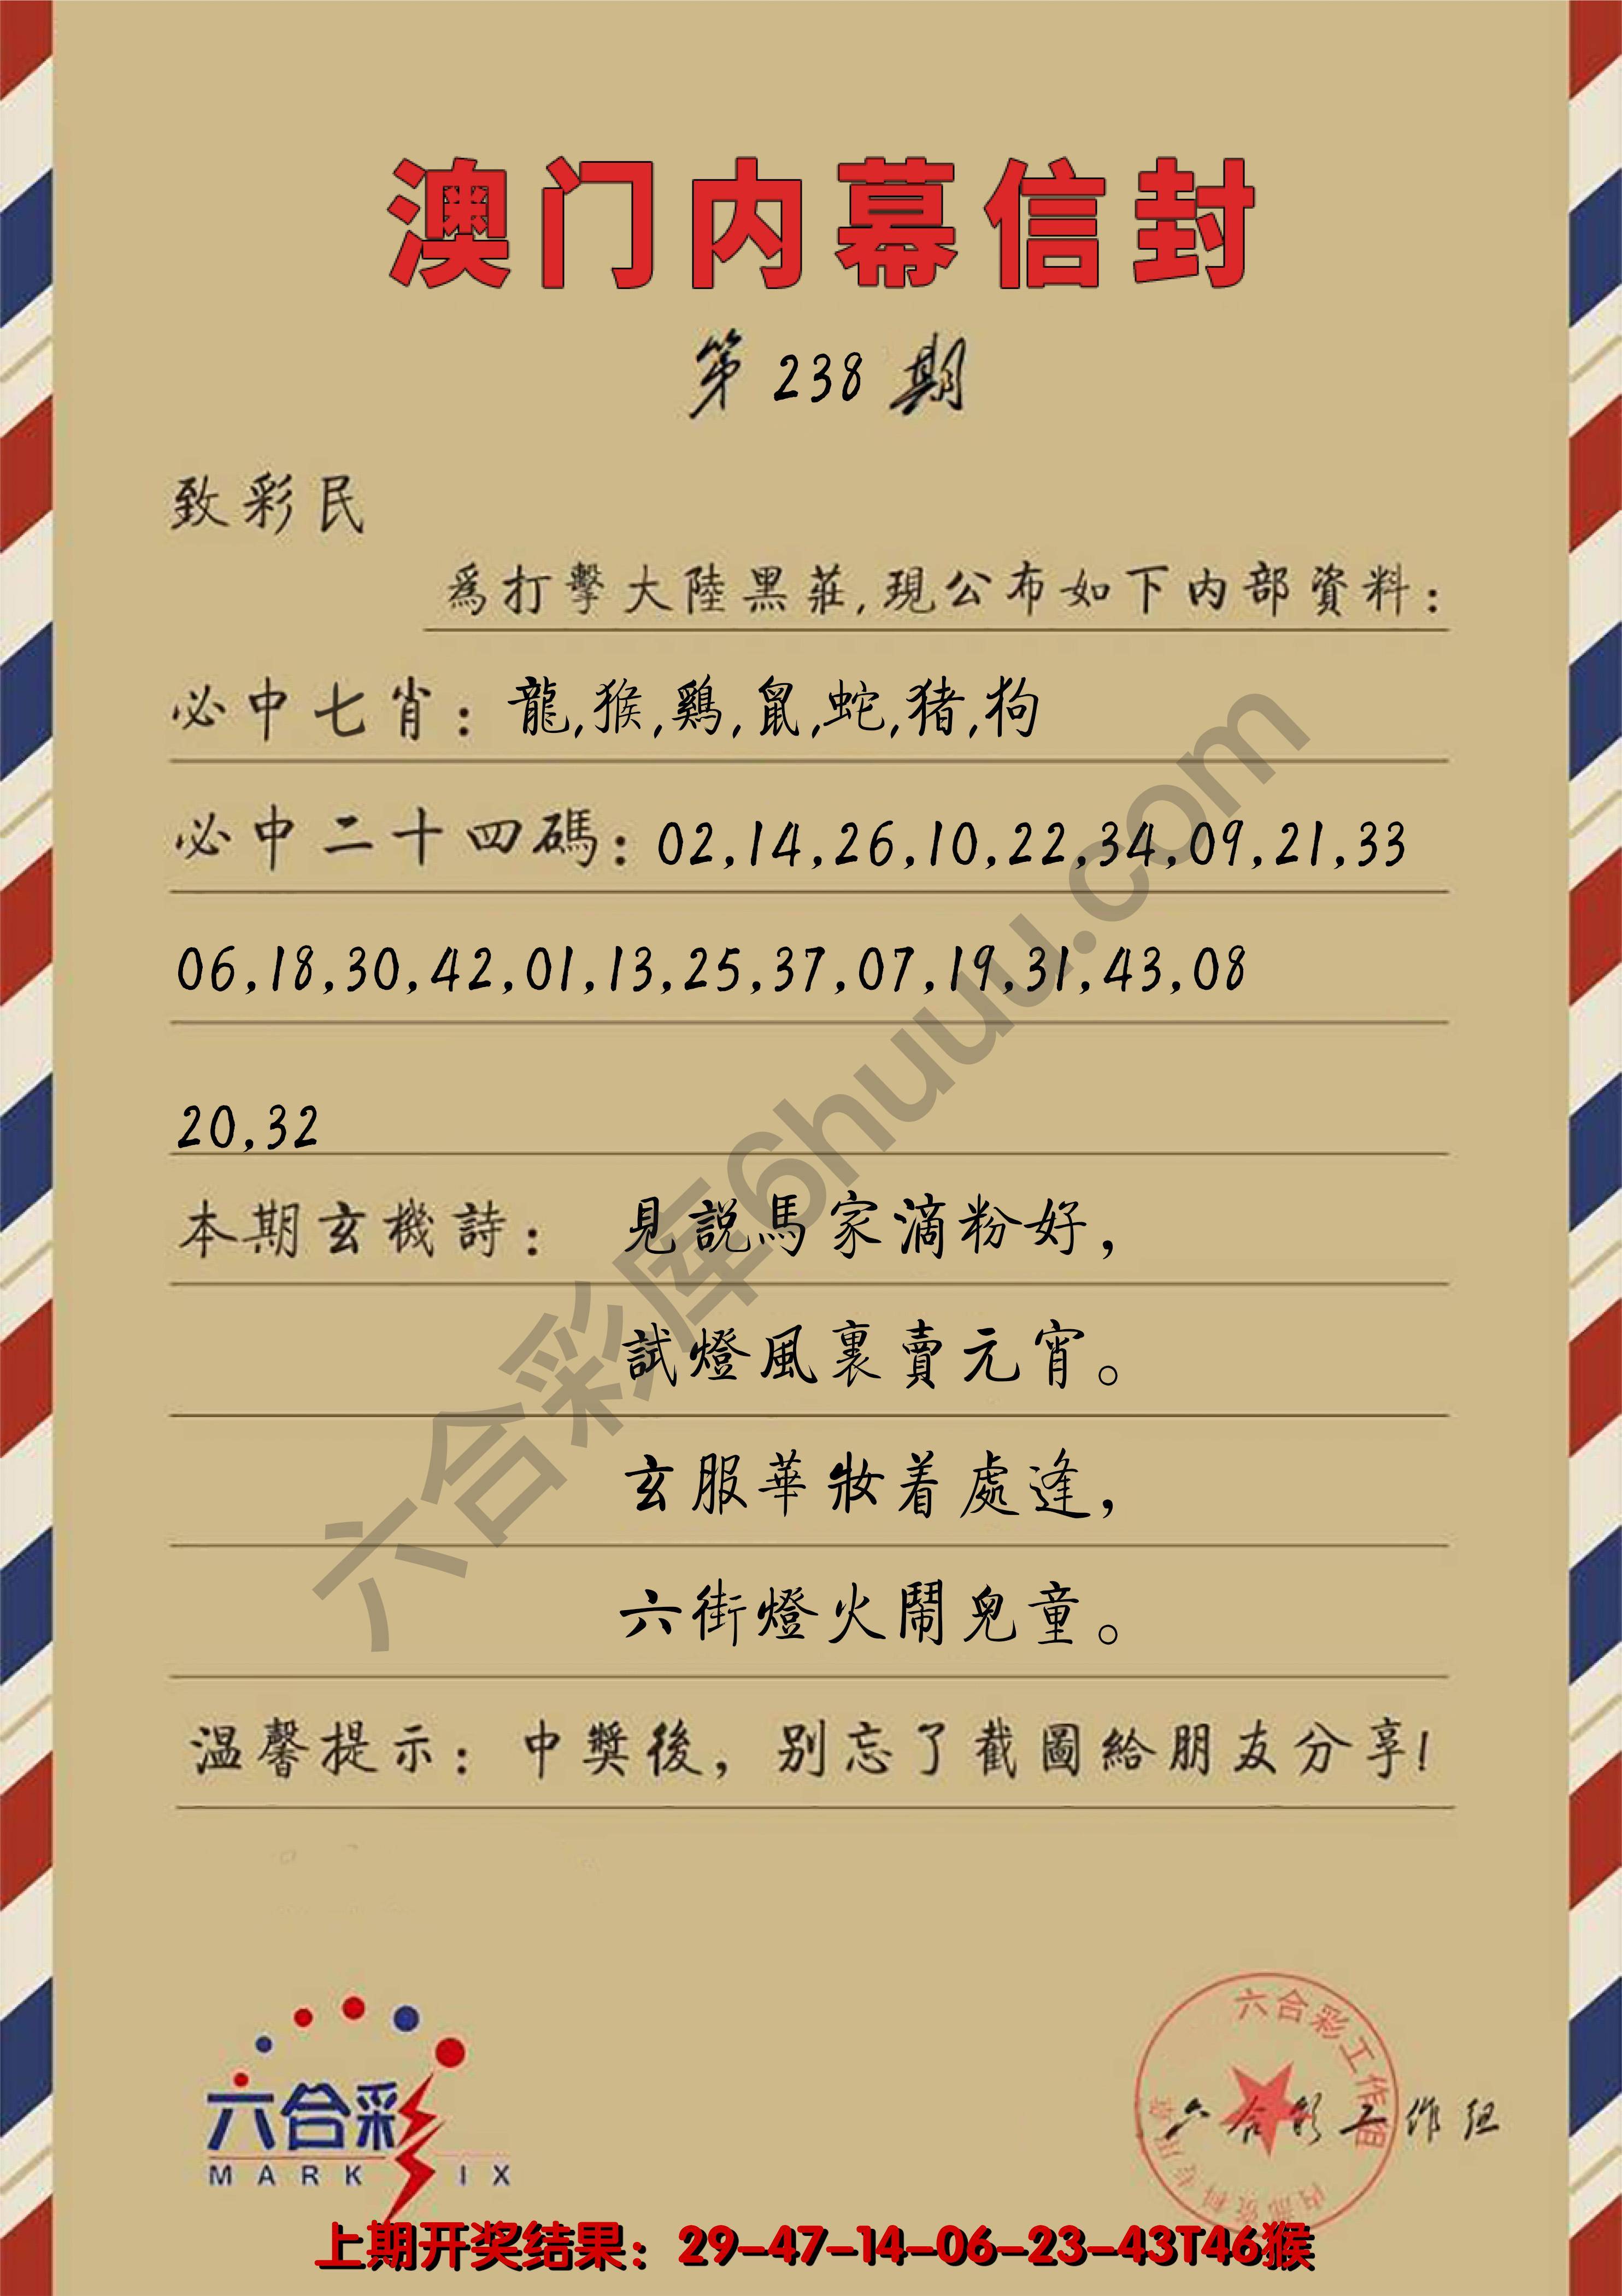 澳门内幕信封
第 238 期
致彩民
爲打擊大陸黑莊,現公布如下内部資料:
必中七肖: 龍,猴,鷄,鼠,蛇,猪,狗
必中二十四碼: 02,14,26,10,22,34,09,21,33
06,18,30,42,01,13,25,37,07,19,31,43,08
20,32
本期玄機詩: 見説馬家滴粉好,
試燈風裏賣元宵。
玄服華妝着處逢,
六街燈火鬧兒童。
温馨提示: 中獎後, 别忘了截圖給朋友分享!
六合彩库6huuu.com
六合彩
MARK IX
六合彩工作组
内部资料专用章
六合彩工作组
上期开奖结果: 29-47-14-06-23-43T46猴